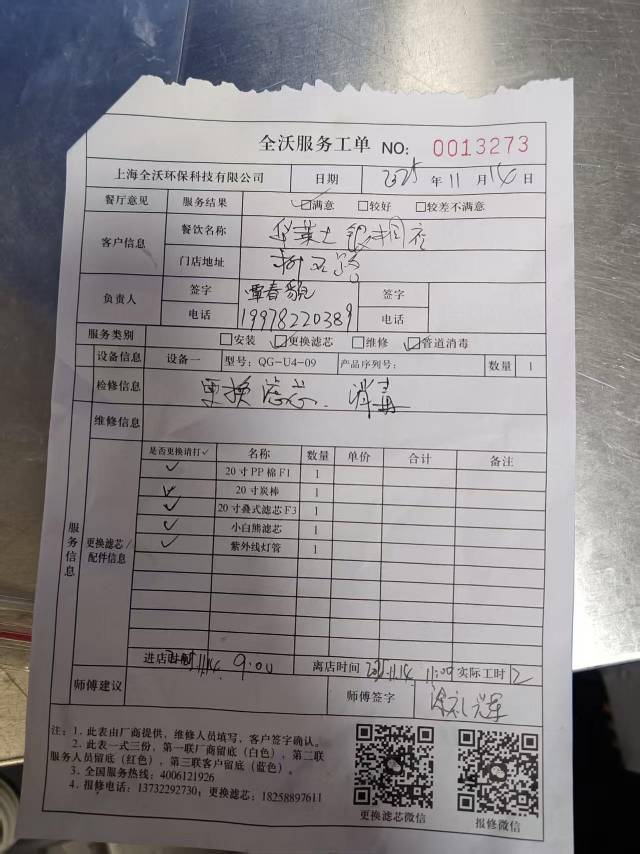 全沃服务工单 NO: 0013273
上海全沃环保科技有限公司 日期 2025 年 11 月 14 日
餐厅意见 服务结果 ☑满意 □较好 □较差不满意
客户信息 餐饮名称
门店地址
负责人 签字 覃春 签字
电话 19978220389 电话
服务类别 □安装 ☑更换滤芯 □维修 ☑管道消毒
设备信息 设备一 型号: QG-U4-09 产品序列号: 数量 1
检修信息 更换滤芯. 消毒
维修信息
服务信息
更换滤芯/配件信息
是否更换请打✓ 名称 数量 单价 合计 备注
✓ 20寸PP棉F1 1
✓ 20寸炭棒 1
✓ 20寸叠式滤芯F3 1
✓ 小白熊滤芯 1
✓ 紫外线灯管 1
进店 11.14 9:00 离店时间 11.14. 11:09 实际工时 2
师傅建议 师傅签字
注: 1、此表由厂商提供，维修人员填写，客户签字确认。
2、此表一式三份，第一联厂商留底（白色），第二联
服务人员留底（红色），第三联客户留底（蓝色）。
3、全国服务热线: 4006121926
4、报修电话: 13732292730; 更换滤芯: 18258897611
更换滤芯微信 报修微信